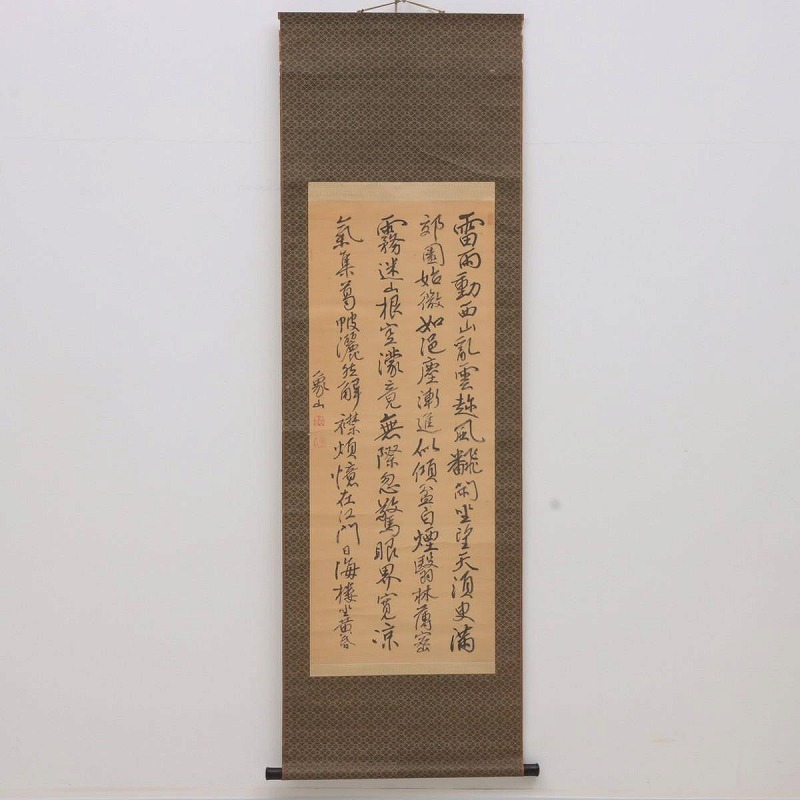 雷雨動西山亂雲趂風飜閑坐望天須臾滿
郊園始微如浥塵漸進似傾盆白煙翳林薄密
霧迷山根空濛竟無際忽驚眼界寛涼
氣集葛帔灑然解襟煩憶在江門日海樓坐黄昏
象山